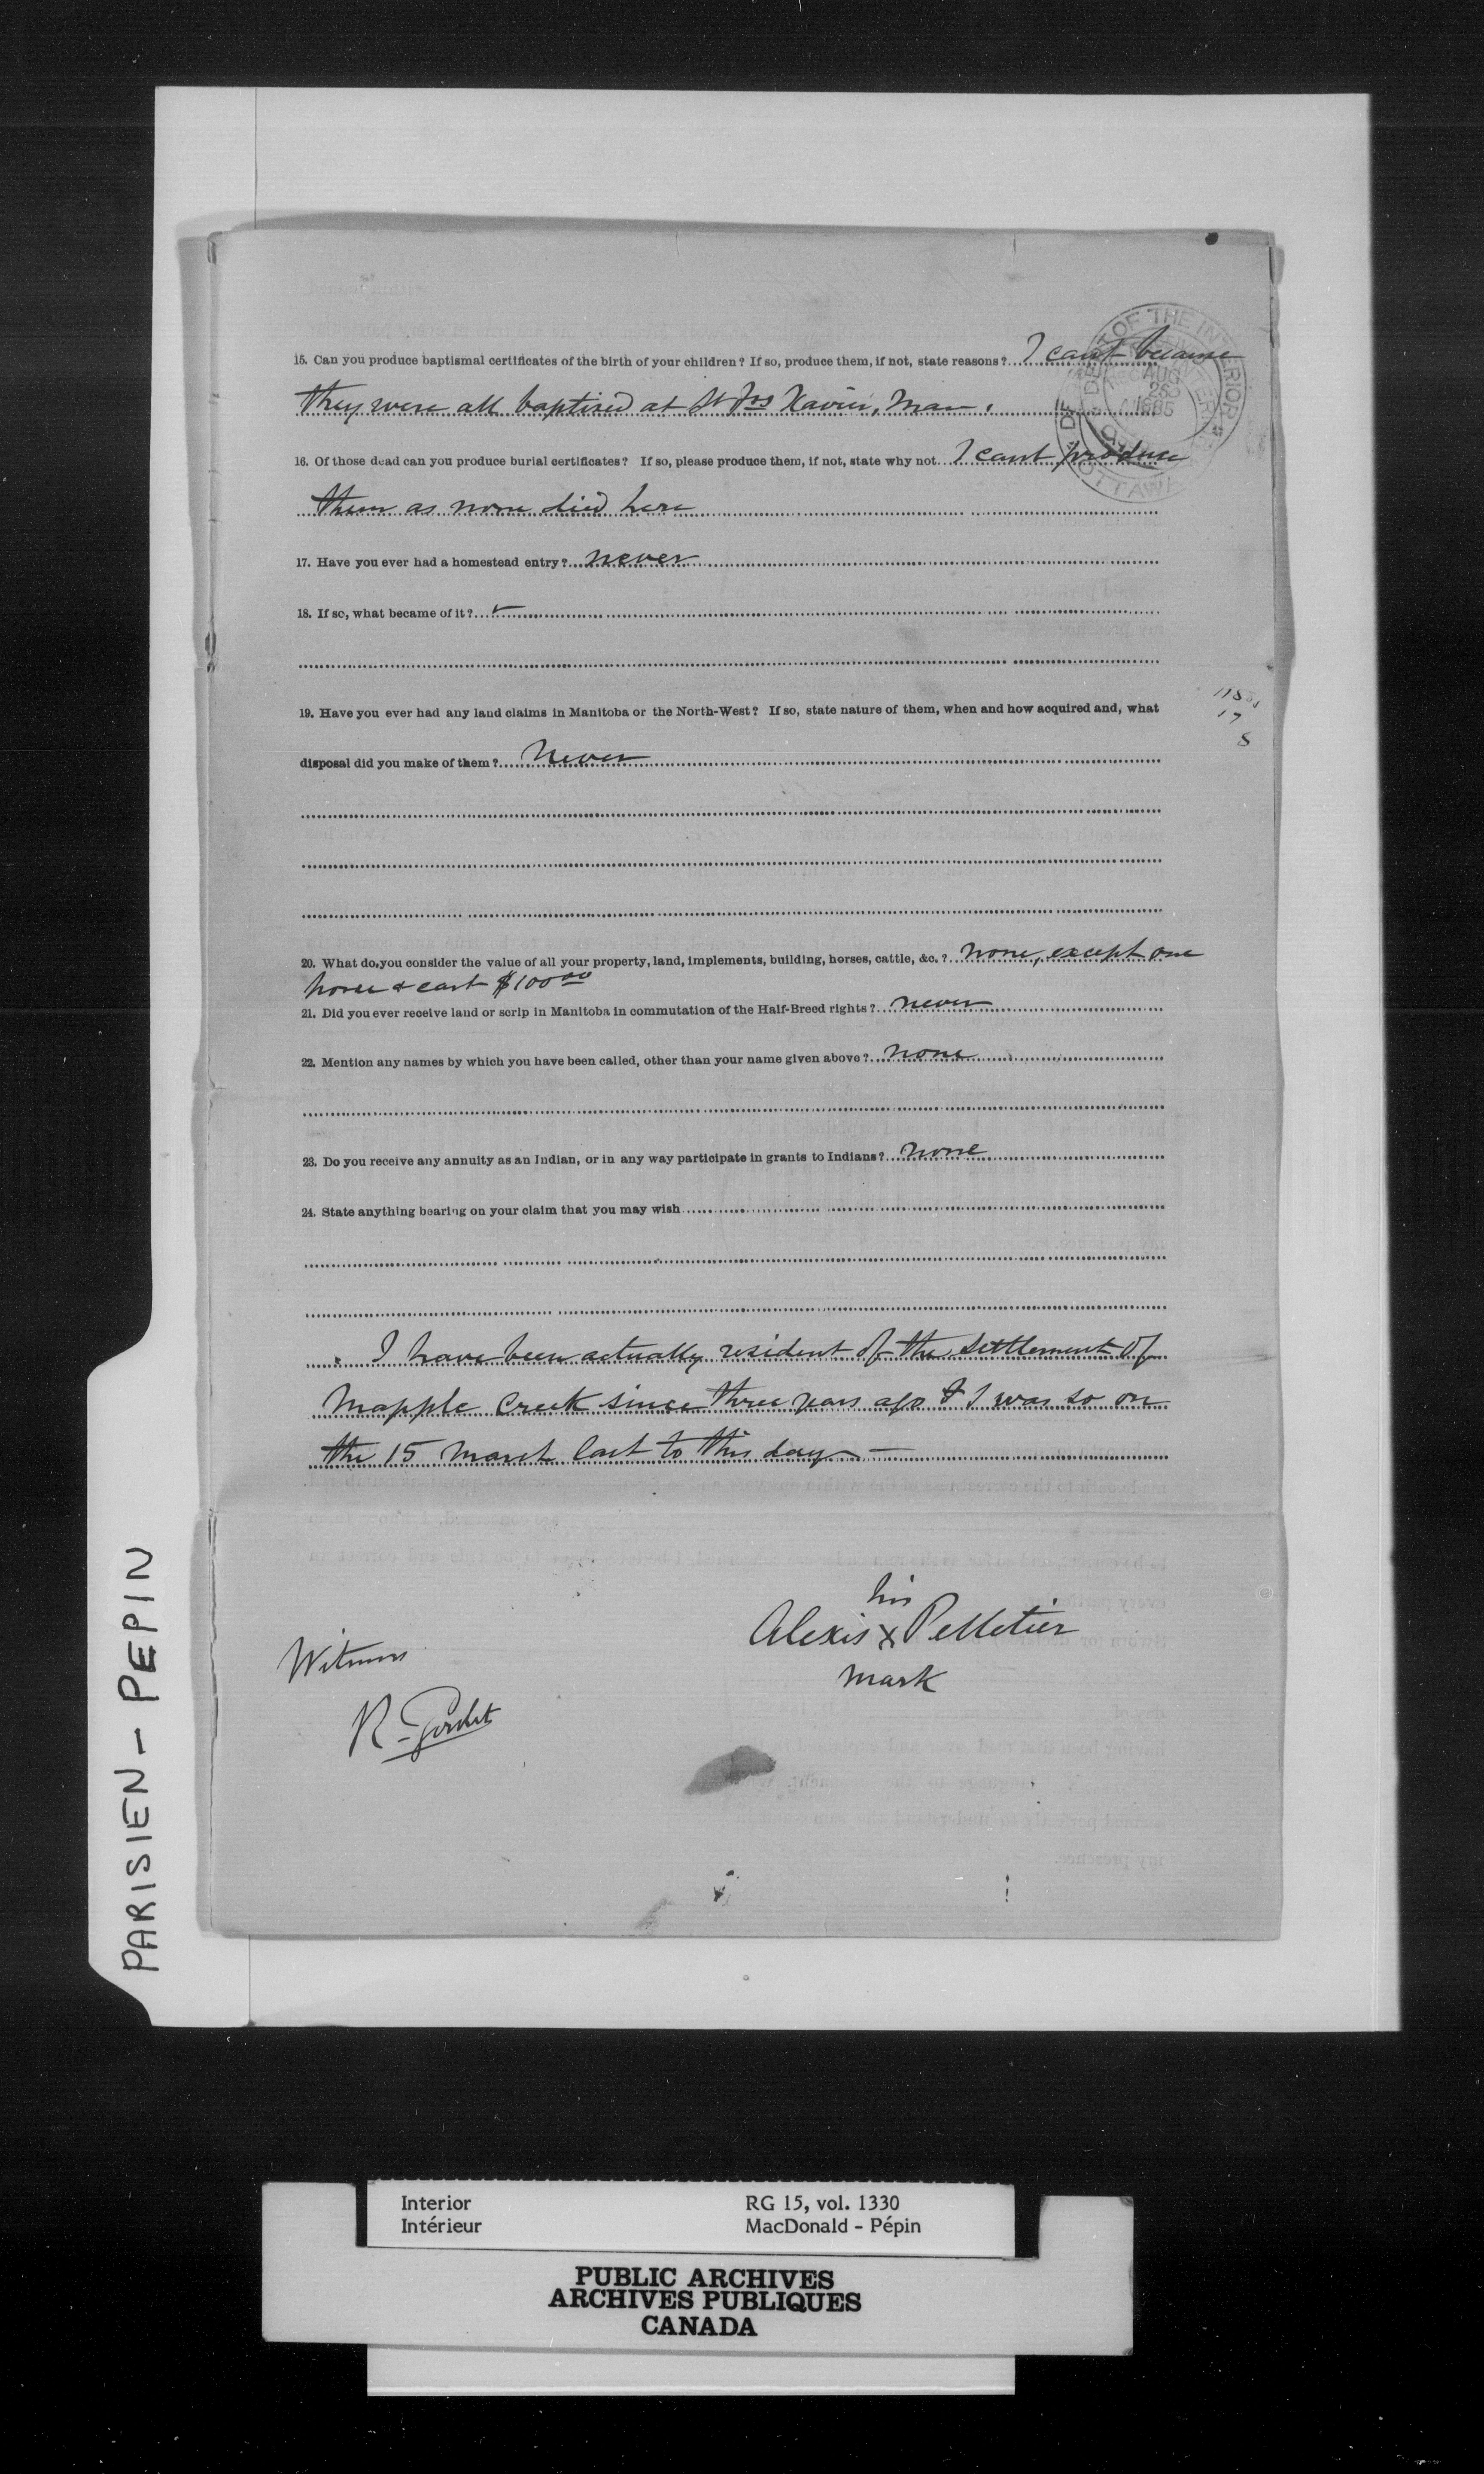 DEPT OF THE INTERIOR
AUG
26
1885
OTTAWA
15. Can you produce baptismal certificates of the birth of your children? If so, produce them, if not, state reasons? I cant because
they were all baptised at St Frs Xavier, Man.
16. Of those dead can you produce burial certificates? If so, please produce them, if not, state why not I cant produce
them as none died here
17. Have you ever had a homestead entry? never
18. If so, what became of it?
19. Have you ever had any land claims in Manitoba or the North-West? If so, state nature of them, when and how acquired and, what
disposal did you make of them? Never
17
8
20. What do you consider the value of all your property, land, implements, building, horses, cattle, &c.? None, except one
horse & cart $100 00
21. Did you ever receive land or scrip in Manitoba in commutation of the Half-Breed rights? never
22. Mention any names by which you have been called, other than your name given above? none
23. Do you receive any annuity as an Indian, or in any way participate in grants to Indians? none
24. State anything bearing on your claim that you may wish
I have been actually resident of the settlement of
Mapple Creek since three years ago & I was so on
the 15 March last to this day —
his
Alexis X Pelletier
mark
Witness
R. Goulet
PARISIEN - PEPIN
Interior RG 15, vol. 1330
Intérieur MacDonald - Pépin
PUBLIC ARCHIVES
ARCHIVES PUBLIQUES
CANADA